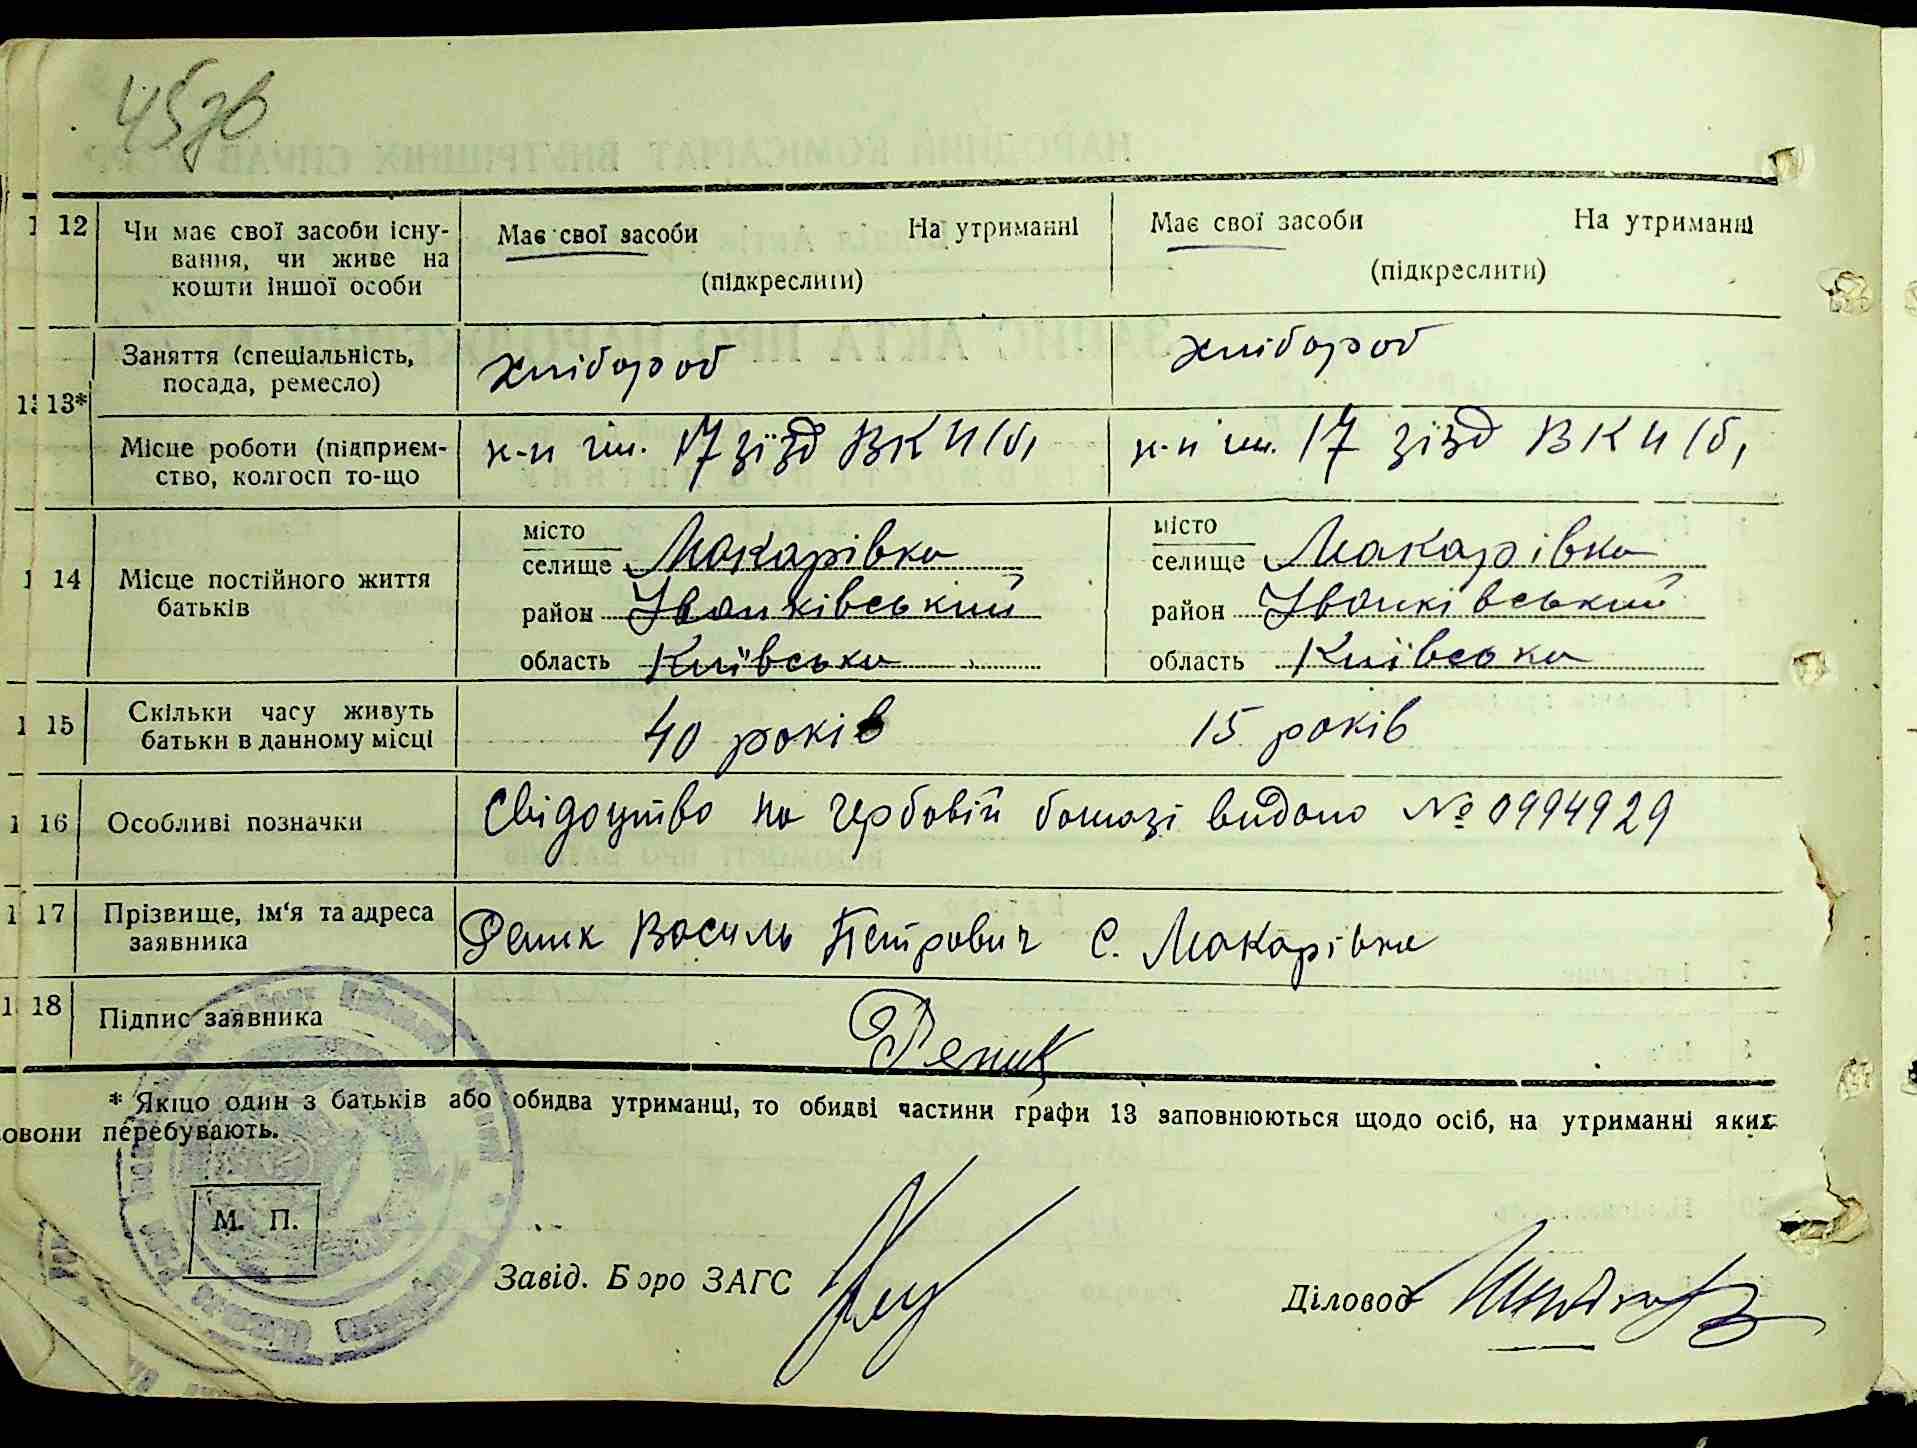 45зв
12 Чи має свої засоби існу- Має свої засоби На утриманні Має свої засоби На утриманні
вання, чи живе на
кошти іншої особи (підкреслити) (підкреслити)
Заняття (спеціальність, хлібороб хлібороб
посада, ремесло)
13*
Місце роботи (підприєм- к-п ім. 17 зїзд ВКП(б) к-п ім. 17 зїзд ВКП(б)
ство, колгосп то-що
місто місто
14 Місце постійного життя селище Макарівка селище Макарівка
батьків район Іванківський район Іванківський
область Київська область Київська
15 Скільки часу живуть 40 років 15 років
батьки в данному місці
16 Особливі позначки Свідоцтво на гербовій бомазі видано № 0994929
17 Прізвище, ім'я та адреса Репик Василь Петрович С. Макарівка
заявника
18 Підпис заявника Репик
* Якщо один з батьків або обидва утриманці, то обидві частини графи 13 заповнюються щодо осіб, на утриманні яких
вони перебувають.
М. П.
Завід. Бюро ЗАГС Діловод